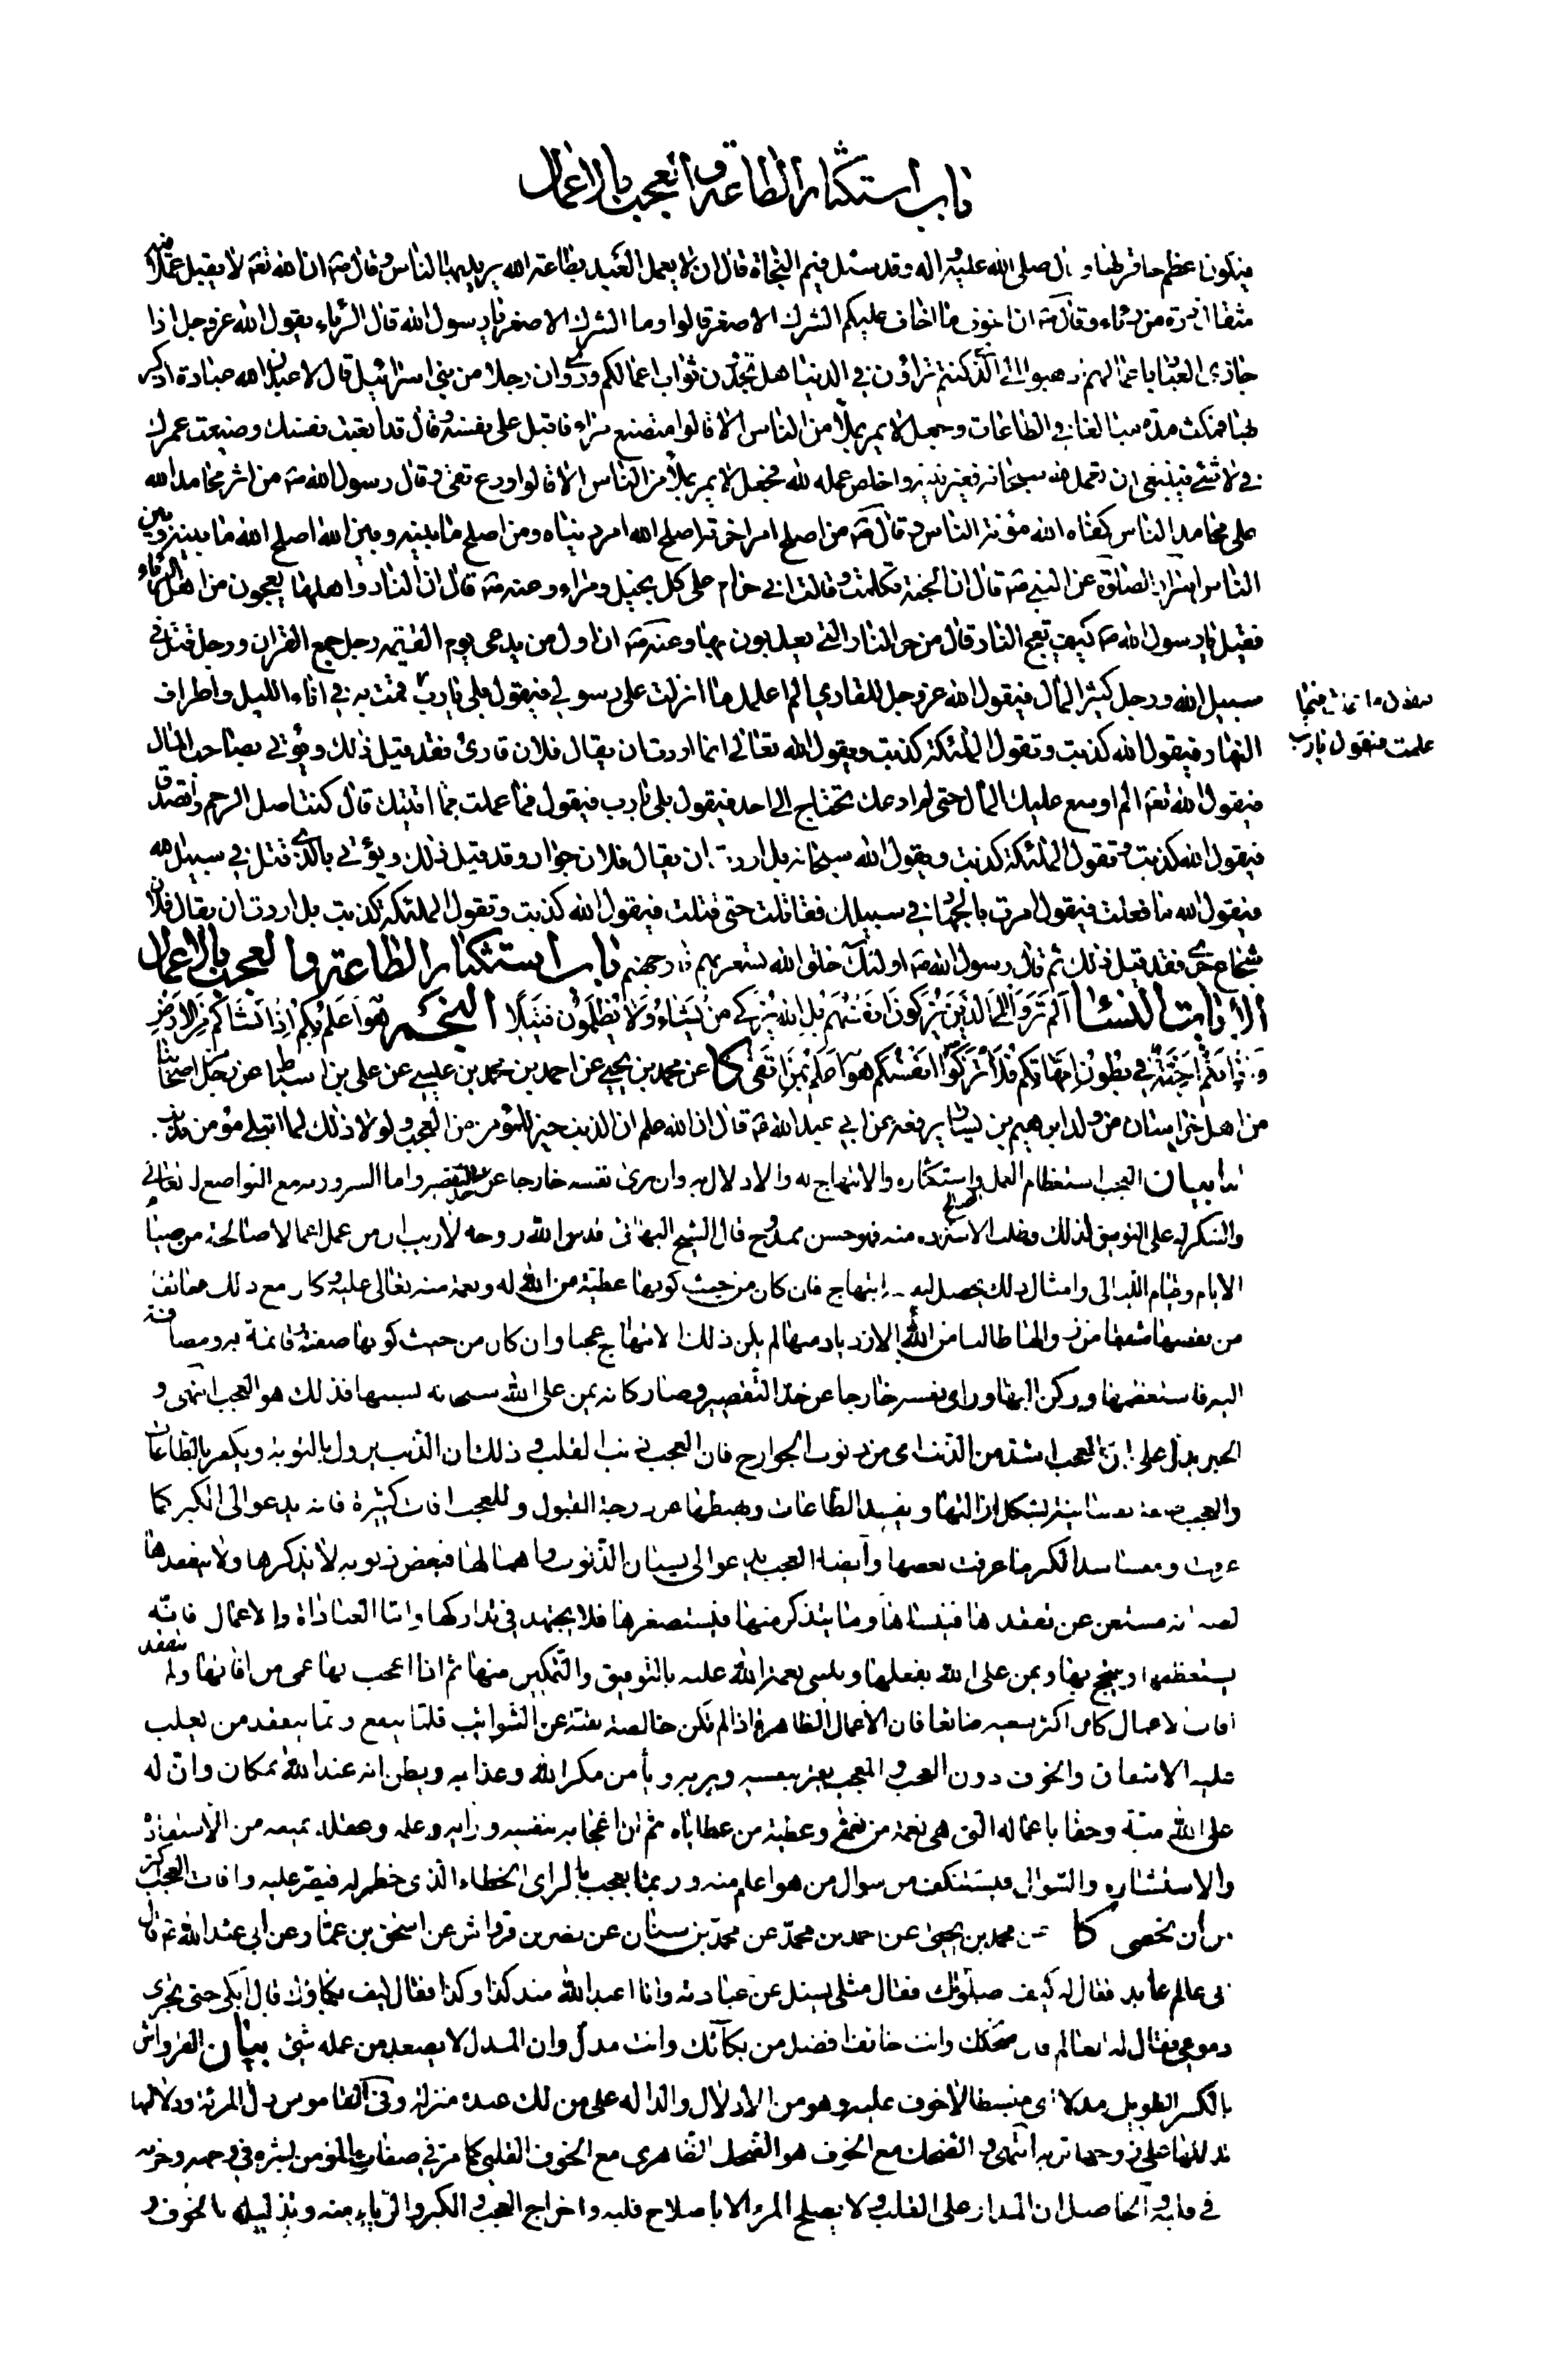 باب استكثار الطاعة و العجب بالاعمال
فيكون اعظم حافرطنا و قال صلى الله عليه و اله و قد سئل فيم النجاة قال ان لا يعمل العبد بطاعة الله يريد بها الناس و قال ص ان الله تعه لا يقبل عملا فيه
مثقال ذرة من رئاء و قال ص ان اخوف ما اخاف عليكم الشرك الاصغر قالوا و ما الشرك الاصغر يا رسول الله قال الرياء يقول الله عز و جل اذا
جازى العباد باعمالهم اذهبوا الى الذى كنتم تراؤن في الدنيا هل تجدون ثواب اعمالكم و روى ان رجلا من بني اسرائيل قال لاعبدن الله عبادة اذكر
بها فمكث مدة مبالغا في الطاعات و جعل لا يمر بملأ من الناس الا قالوا متصنع مراء فاقبل على نفسه و قال قد اتعبت نفسك و ضيعت عمرك
في لا شئ فينبغي ان تعمل لله سبحانه فغير نيته و اخلص عمله لله فجعل لا يمر بملأ من الناس الا قالوا ورع تقى و قال رسول الله ص من اثر محامد الله
على محامد الناس كفاه الله مؤنة الناس و قال ص من اصلح امر اخرته اصلح الله امر دنياه و من اصلح ما بينه و بين الله اصلح الله ما بينه و بين
الناس اسرار الصلوة عن النبي ص قال ان الجنة تكلمت و قالت اني حرام على كل بخيل و مراء و عنه ص قال ان النار و اهلها يعجون من اهل الرياء
فقيل يا رسول الله ص كيف تعج النار قال من حر النار التي يعذبون بها و عنه ص ان اول من يدعى يوم القيمه رجل جمع القران و رجل قتل في
سبيل الله و رجل كثير المال فيقول الله عز و جل للقاري الم اعلمك ما انزلت على رسولي فيقول بلى يا رب فيقول ما عملت فيما
علمت فيقول يا رب قمت به في اناء الليل و اطراف
النهار فيقول الله كذبت و تقول الملئكة كذبت و يقول الله تعالى انما اردت ان يقال فلان قارئ فقد قيل ذلك و يؤتى بصاحب المال
فيقول الله تعه الم اوسع عليك المال حتى لم ادعك تحتاج الى احد فيقول بلى يا رب فيقول فما عملت بما اتيتك قال كنت اصل الرحم و اتصدق
فيقول الله كذبت و تقول الملئكة كذبت و يقول الله سبحانه بل اردت ان يقال فلان جواد و قد قيل ذلك و يؤتى بالذى قتل في سبيل الله
فيقول الله ما فعلت فيقول امرت بالجهاد في سبيلك فقاتلت حتى قتلت فيقول الله كذبت و تقول الملئكة كذبت بل اردت ان يقال فلان
شجاع جرى فقد قيل ذلك ثم قال رسول الله ص اولئك خلق الله تسعر بهم نار جهنم باب استكثار الطاعة و العجب بالاعمال
الايات النساء الم تر الى الذين يزكون انفسهم بل الله يزكي من يشاء و لا يظلمون فتيلا النجم هو اعلم بكم اذ انشاكم من الارض
و اذ انتم اجنة في بطون امهاتكم فلا تزكوا انفسكم هو اعلم بمن اتقى كا عن محمد بن يحيى عن احمد بن محمد بن عيسى عن علي بن اسباط عن رجل من اصحابنا
من اهل خراسان من ولد ابراهيم بن يسار يرفعه عن ابي عبد الله ع قال ان الله علم ان الذنب خير للمؤمن من العجب و لولا ذلك لما ابتلى مؤمن بذنب
ابدا بيان العجب استعظام العمل الصالح و استكثاره و الابتهاج له و الادلال به و ان يرى نفسه خارجا عن حد التقصير و اما السرور به مع التواضع له تعالى
و الشكر له على التوفيق لذلك و طلب الاستزاده منه فهو حسن ممدوح قال الشيخ البهائي قدس الله روحه لا ريب ان من عمل اعمالا صالحة من صيام
الايام و قيام الليالى و امثال ذلك يحصل لنفسه ابتهاج فان كان من حيث كونها عطية من الله له و نعمة منه تعالى عليه و كان مع ذلك خائفا
من نقصها مشفقا من زوالها طالبا من الله الازدياد منها لم يكن ذلك الابتهاج عجبا و ان كان من حيث كونها صفته و قائمة به و مضافة
اليه فاستعظمها و ركن اليها و راى نفسه خارجا عن حد التقصير و صار كانه يمن على الله سبحانه بسببها فذلك هو العجب انتهى و
الخبر يدل على ان العجب اشد من الذنب اى من ذنوب الجوارح فان العجب ذنب القلب و ذلك ان الذنب يزول بالتوبة و يكفر بالطاعات
و العجب صفة نفسانية يشكل ازالتها و يفسد الطاعات و يهبطها عن درجة القبول و للعجب افات كثيرة فانه يدعو الى الكبر كما
عرفت و مفاسد الكبر ما عرفت بعضها و ايضا العجب يدعو الى نسيان الذنوب و اهمالها فبعض ذنوبه لا يذكرها و لا يتفقدها
لظنه انه مستغن عن تفقدها فينساها و ما يتذكر منها فيستصغرها فلا يجتهد في تداركها و اما العبادات و الاعمال فانه
يستعظمها و يبتهج بها و يمن على الله بفعلها و ينسى نعمة الله عليه بالتوفيق و التمكين منها ثم اذا اعجب بها عمى عن افاتها و من لم يتفقد
افات الاعمال كان اكثر سعيه ضائعا فان الاعمال الظاهرة اذا لم تكن خالصة نقية عن الشوائب قلما ينفع و انما يتفقد من يغلب
عليه الاشفاق و الخوف دون العجب و المعجب يغتر بنفسه و بربه و يأمن مكر الله و عذابه و يظن انه عند الله بمكان و ان له
على الله منة و حقا باعماله التى هى نعمة من نعمه و عطية من عطاياه ثم ان اعجابه بنفسه و رايه و علمه و عقله يمنعه من الاستفادة
و الاستشارة و السؤال فيستنكف من سوال من هو اعلم منه و ربما يعجب بالراى الخطاء الذى خطر له فيصر عليه و افات العجب اكثر
من ان تحصى كا عن محمد بن يحيى عن احمد بن محمد عن محمد بن سنان عن نضر بن قرواش عن اسحق بن عمار عن ابى عبد الله ع قال
اتى عالم عابدا فقال له كيف صلوتك فقال مثلى يسئل عن عبادته و انا اعبد الله منذ كذا و كذا فقال كيف بكاؤك قال ابكى حتى تجرى
دموعي فقال له العالم فان ضحكك و انت خائف افضل من بكائك و انت مدل و ان المدل لا يصعد من عمله شئ بيان القرواش
بالكسر الطويل مدلا اى منبسطا لا خوف عليه و هو من الادلال و الدالة على من لك عنده منزلة و في القاموس دل المرئة و دلالها
تدللها على زوجها تريه انتهى و الضحك مع الخوف هو الضحك الظاهرى مع الخوف القلبى كما مر في صفات المؤمن بشره في وجهه و حزنه
في قلبه و الحاصل ان المدار على القلب و لا يصلح المرء الا باصلاح قلبه و اخراج العجب و الكبر و الرياء منه و تذليله بالخوف و